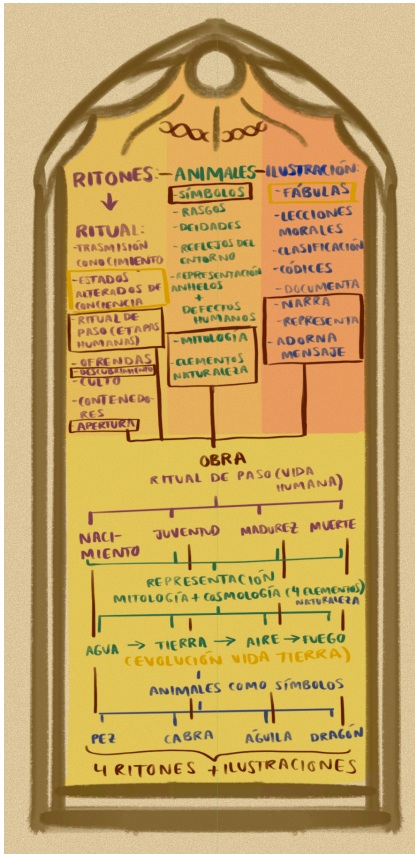 RITONES:
RITUAL:
-TRASMISIÓN
CONOCIMIENTO
-ESTADOS
ALTERADOS DE
CONCIENCIA
-RITUAL DE
PASO (ETAPAS
HUMANAS)
-OFRENDAS
-DESCUBRIMIENTO
-CULTO
-CONTENEDO-
RES
APERTURA
-ANIMALES-
-SÍMBOLOS
-RASGOS
-DEIDADES
-REFLEJOS DEL
ENTORNO
-REPRESENTACIÓN
ANHELOS
+
DEFECTOS
HUMANOS
-MITOLOGÍA
-ELEMENTOS
NATURALEZA
ILUSTRACIÓN:
-FÁBULAS
-LECCIONES
MORALES
-CLASIFICACIÓN
-CÓDICES
-DOCUMENTA
-NARRA
-REPRESENTA
-ADORNA
MENSAJE
OBRA
RITUAL DE PASO (VIDA
HUMANA)
NACI-
MIENTO
JUVENTUD
MADUREZ
MUERTE
REPRESENTACIÓN
MITOLOGÍA + COSMOLOGÍA (4 ELEMENTOS)
NATURALEZA
AGUA → TIERRA → AIRE → FUEGO
(EVOLUCIÓN VIDA TIERRA)
ANIMALES COMO SÍMBOLOS
PEZ CABRA ÁGUILA DRAGÓN
4 RITONES + ILUSTRACIONES